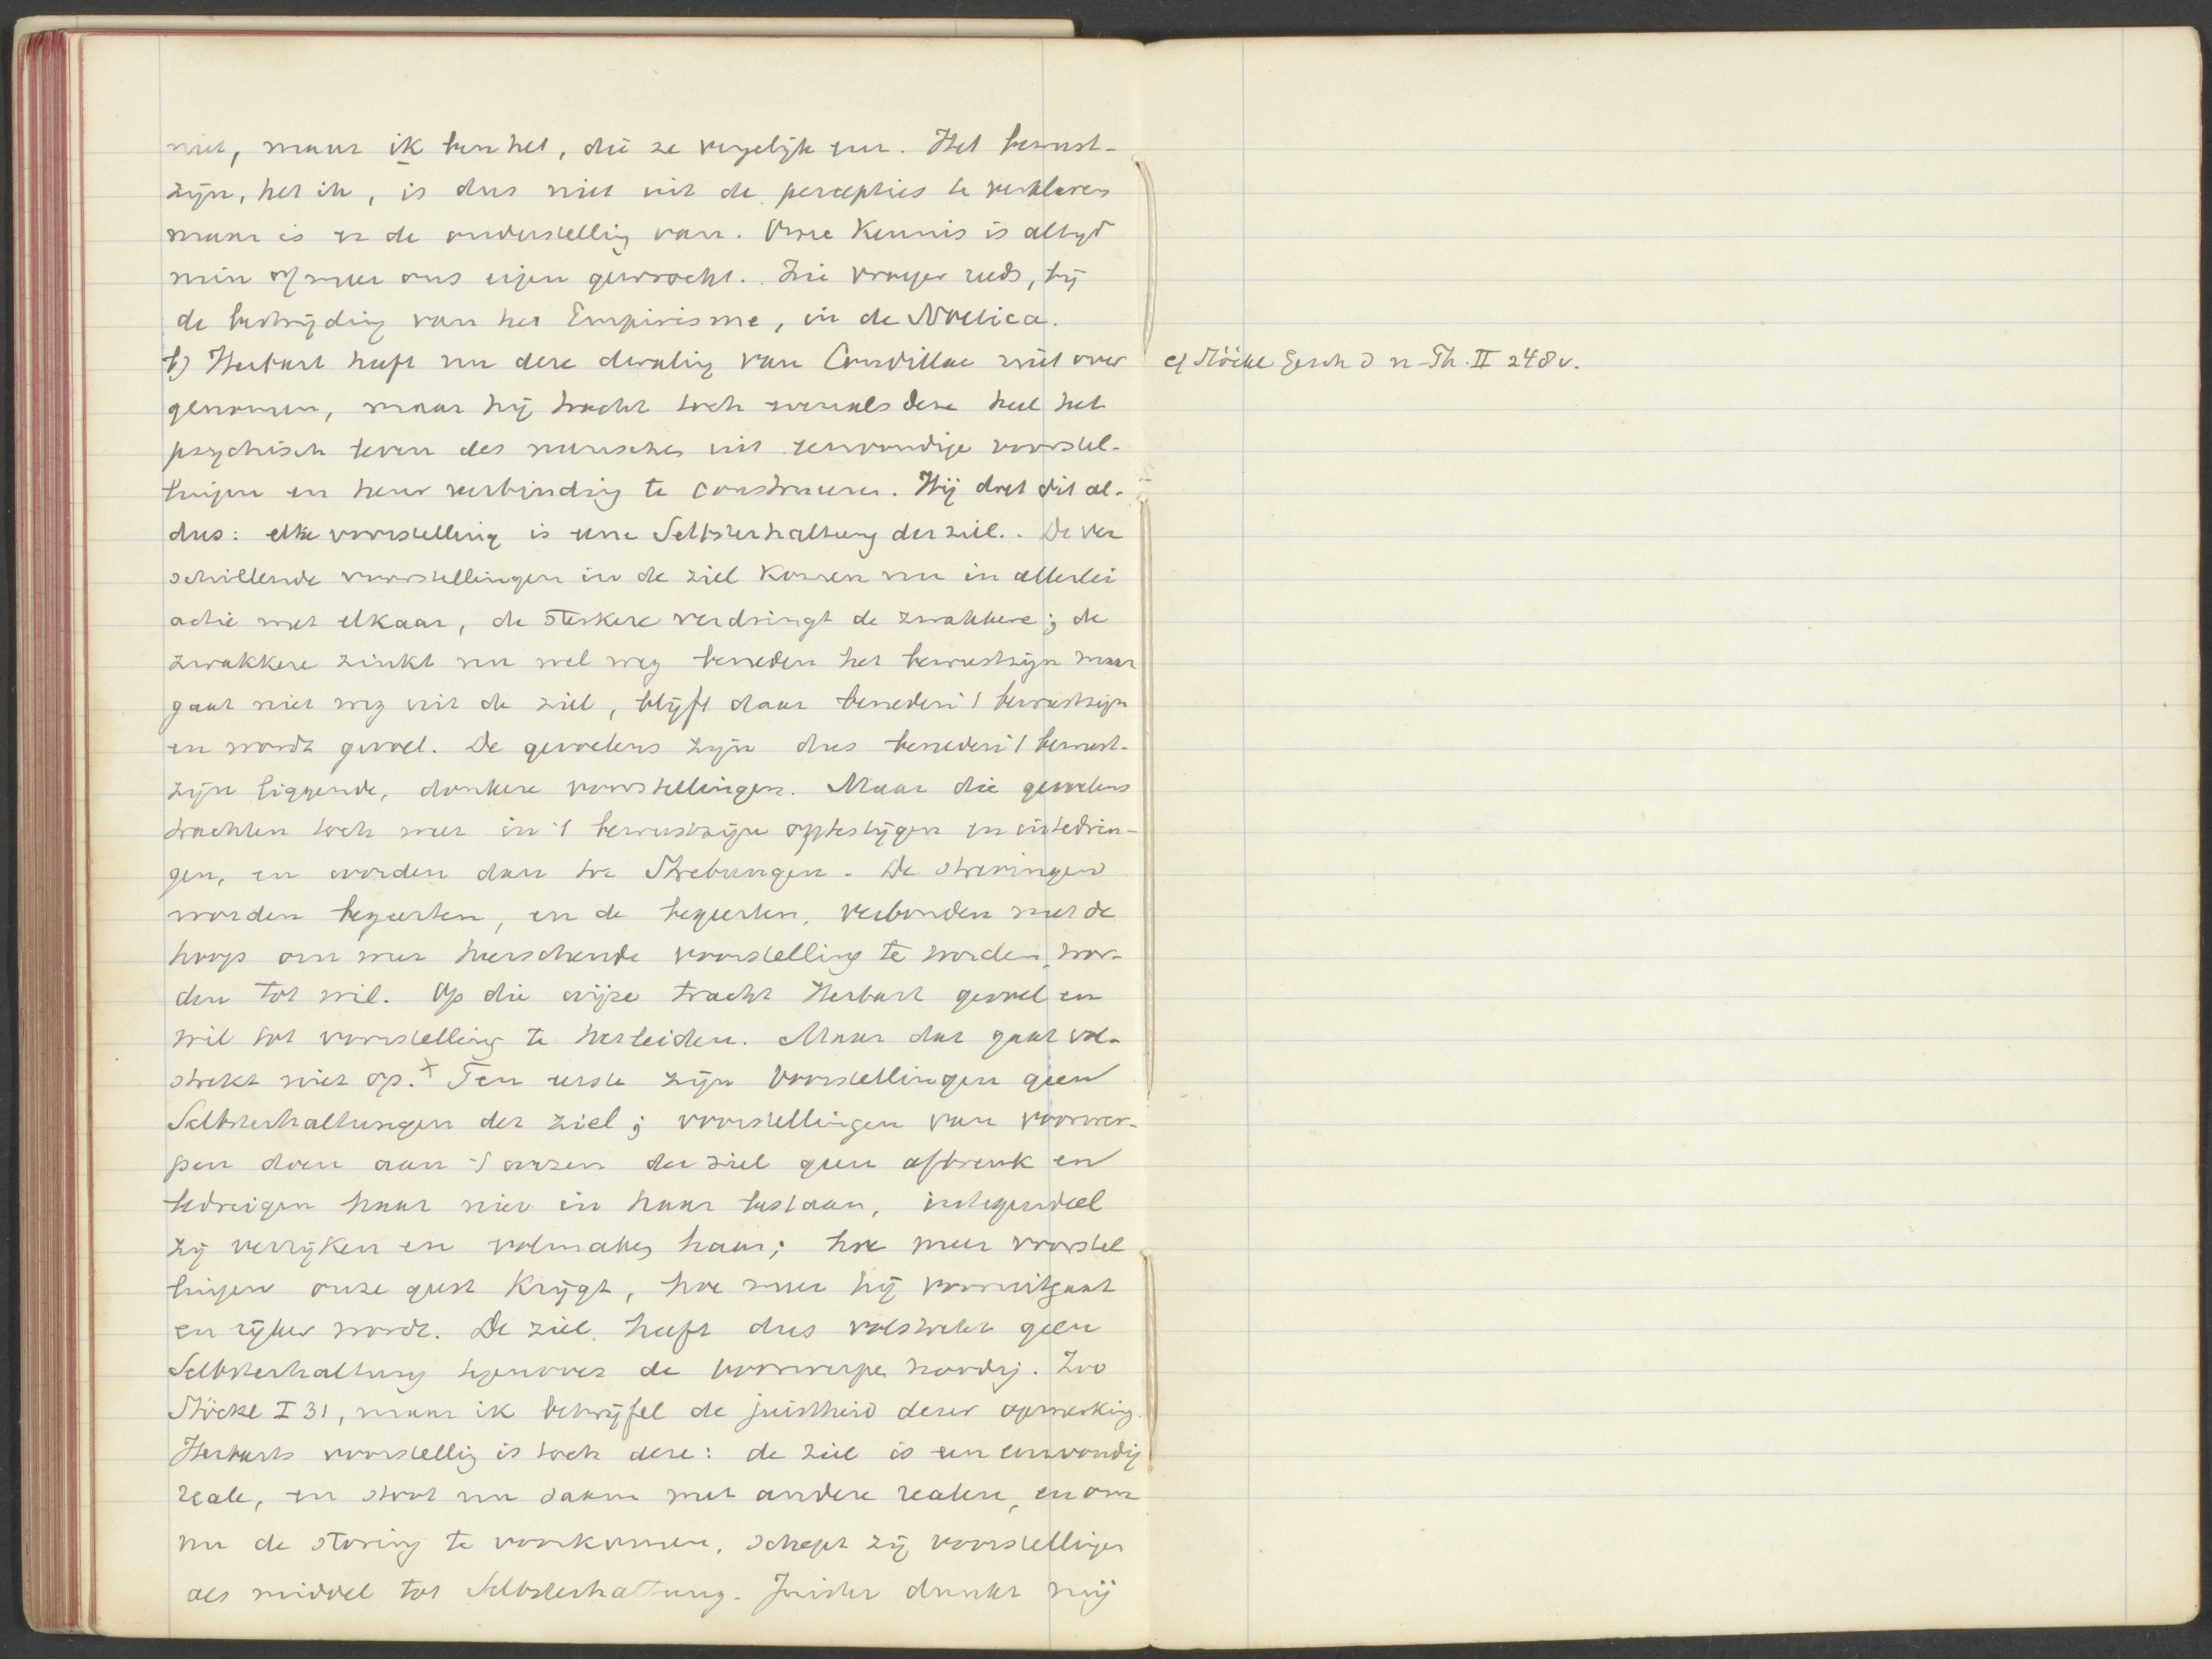 niet, maar ik ben het, die ze vergelijk enz. Het bewust-
zijn, het ik, is dus niet uit de percepties te verklaren
maar is er de onderstelling van. Onze Kennis is altijd
min of meer ons eigen gewrocht. Zie vroeger reeds, bij
de bestrijding van het Empirisme, in de Noetica.
b) Herbart heeft nu deze dwaling van Condillac niet over
genomen, maar hij tracht toch evenals deze heel het
psychisch leven des menschen uit eenvoudige voorstel-
lingen en hun verbinding te construeeren. Hij doet dit al-
dus: elke voorstelling is eene Selbsterhaltung der ziel. De ver
schillende voorstellingen in de ziel komen nu in allerlei
actie met elkaar, de sterkere verdringt de zwakkere; de
zwakkere zinkt nu wel weg beneden het bewustzijn maar
gaat niet weg uit de ziel, blijft daar beneden 't bewustzijn
en wordt gevoel. De gevoelens zijn dus beneden 't bewust-
zijn liggende, donkere voorstellingen. Maar die gevoelens
trachten toch weer in 't bewustzijn optestijgen en intedrin-
gen, en worden dan tot Strebungen. De strevingen
worden begeerten, en de begeerten, verbonden met de
hoop om weer heerschende voorstelling te worden, wor-
den tot wil. Op die wijze tracht Herbart gevoel en
wil tot voorstelling te herleiden. Maar dat gaat vol-
strekt niet op.x Ten eerste zijn voorstellingen geen
Selbsterhaltungen der ziel; voorstellingen van voorwer-
pen doen aan 't wezen der ziel geen afbreuk en
bedreigen haar niet in haar bestaan, integendeel
zij verrijken en volmaken haar; hoe meer voorstel
lingen onze geest krijgt, hoe meer hij vooruitgaat
en rijker wordt. De ziel heeft dus volstrekt geen
Selbsterhaltung tegenover de voorwerpen noodig. Zoo
Stöckl I 31, maar ik betwijfel de juistheid dezer opmerking.
Herbarts voorstelling is toch deze: de ziel is een eenvoudig
reale, en stoot nu saam met andere realen, en om
nu de storing te voorkomen, schept zij voorstellingen
als middel tot Selbsterhaltung. Juister dunkt mij
cf Stöckl Gesch d n-Th. II 248 v.